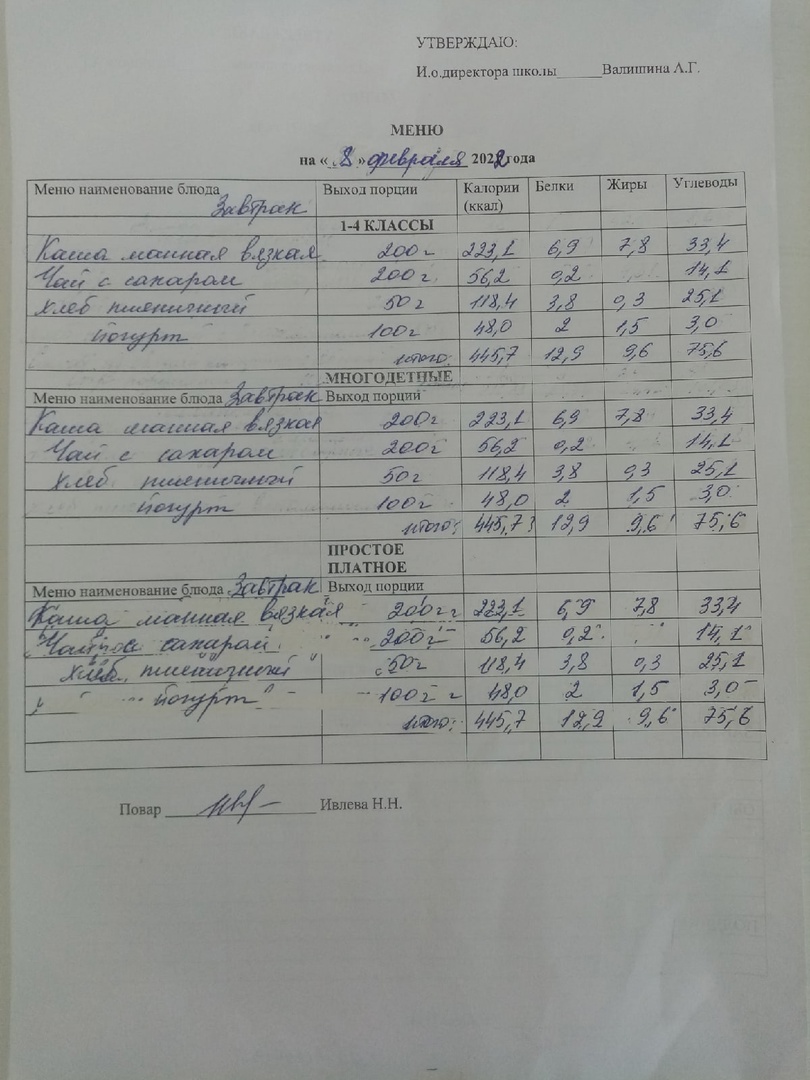 УТВЕРЖДАЮ:
И.о.директора школы______Валишина А.Г.
МЕНЮ
на « 8 » февраля 2022года
Меню наименование блюда Завтрак Выход порции Калории (ккал) Белки Жиры Углеводы
1-4 КЛАССЫ
Каша манная вязкая 200г 223,1 6,9 7,8 33,4
Чай с сахаром 200г 56,2 0,2 14,1
Хлеб пшеничный 50г 118,4 3,8 0,3 25,1
йогурт 100г 48,0 2 1,5 3,0
итого: 445,7 12,9 9,6 75,6
МНОГОДЕТНЫЕ
Меню наименование блюда Завтрак Выход порции
Каша манная вязкая 200г 223,1 6,9 7,8 33,4
Чай с сахаром 200г 56,2 0,2 14,1
Хлеб пшеничный 50г 118,4 3,8 0,3 25,1
йогурт 100г 48,0 2 1,5 3,0
итого: 445,7 12,9 9,6 75,6
ПРОСТОЕ
ПЛАТНОЕ
Меню наименование блюда Завтрак Выход порции
Каша манная вязкая 200г 223,1 6,9 7,8 33,4
Чай с сахаром 200г 56,2 0,2 14,1
Хлеб пшеничный 50г 118,4 3,8 0,3 25,1
йогурт 100г 48,0 2 1,5 3,0
итого: 445,7 12,9 9,6 75,6
Повар ______ Ивлева Н.Н.